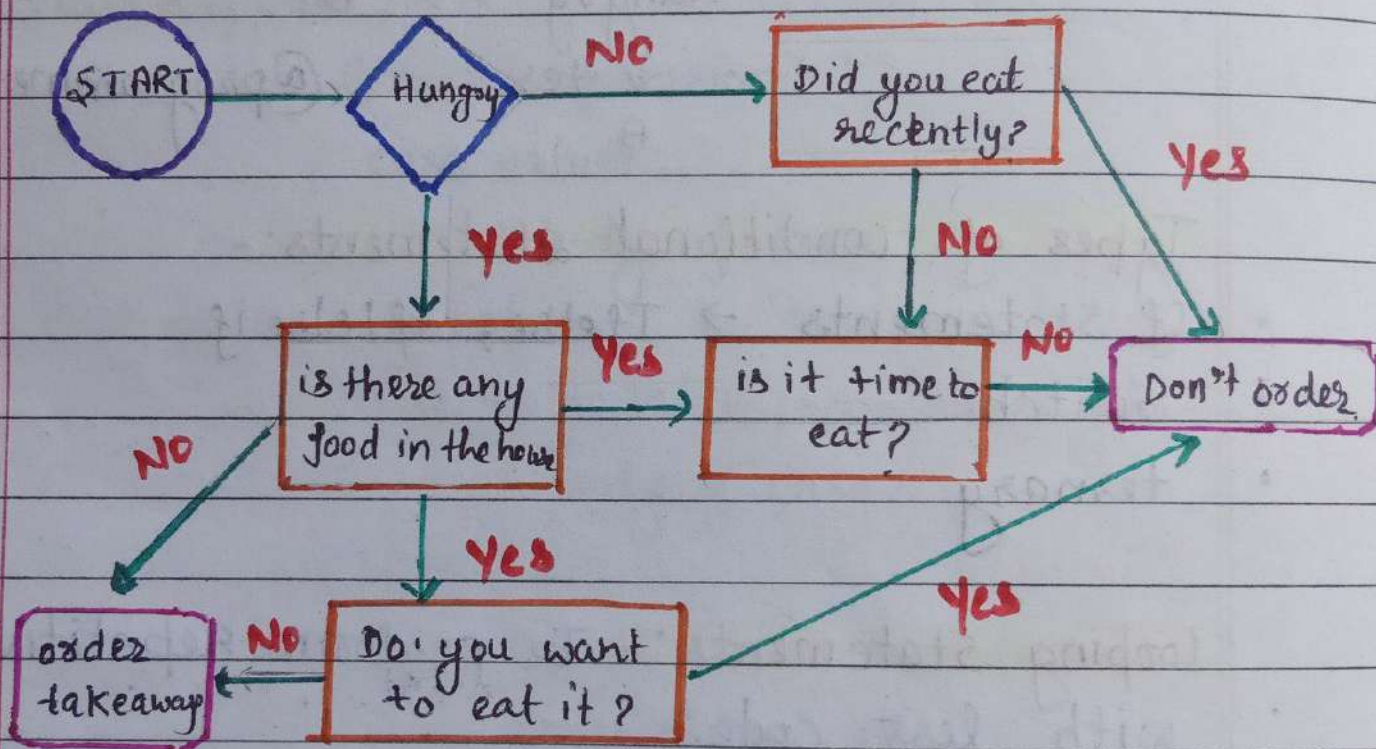 START
Hungry
NO
Did you eat
recently?
Yes
Yes
NO
is there any
food in the house
Yes
is it time to
eat?
NO
Don't order
NO
Yes
Yes
order
takeaway
NO
Do you want
to eat it?